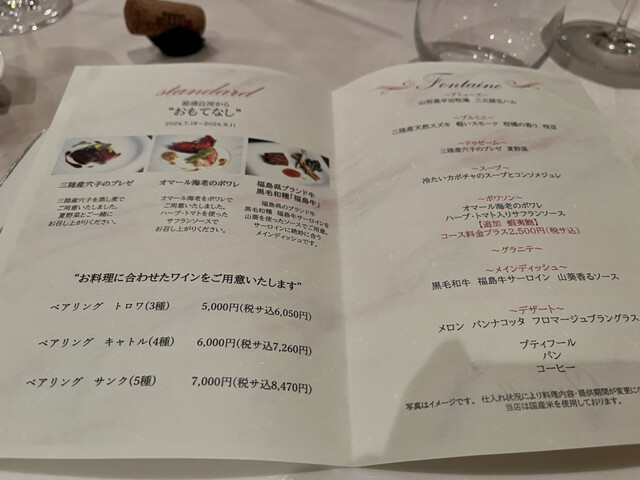 standard
那須白河から
"おもてなし"
2024.7.18～2024.9.11
三陸産穴子のブレゼ
三陸産穴子を蒸し煮で
ご用意いたしました。
夏野菜とご一緒に
お召し上がりください。
オマール海老のポワレ
オマール海老をポワレで
ご用意いたしました。
ハーブ・トマトを使った
サフランソースで
お召し上がりください。
福島県ブランド牛
黒毛和種「福島牛」
福島県のブランド牛
黒毛和種 福島牛サーロインを
山葵を使ったソースでご用意。
サーロインに絶妙に合う
メインディッシュです。
"お料理に合わせたワインをご用意いたします"
ペアリング トロワ(3種) 5,000円(税サ込6,050円)
ペアリング キャトル(4種) 6,000円(税サ込7,260円)
ペアリング サンク(5種) 7,000円(税サ込8,470円)
Fontaine
～アミューズ～
山形県平田牧場 三元豚生ハム
～プルミエ～
三陸産天然スズキ 軽いスモーク 柑橘の香り 枝豆
～ドゥゼーム～
三陸産穴子のブレゼ 夏野菜
～スープ～
冷たいカボチャのスープとコンソメジュレ
～ポワソン～
オマール海老のポワレ
ハーブ・トマト入りサフランソース
【追加 蝦夷鮑】
コース料金プラス2,500円(税サ込)
～グラニテ～
～メインディッシュ～
黒毛和牛 福島牛サーロイン 山葵香るソース
～デザート～
メロン パンナコッタ フロマージュブラングラス
プティフール
パン
コーヒー
写真はイメージです。 仕入れ状況により料理内容・提供期間が変更にな
当店は国産米を使用しております。